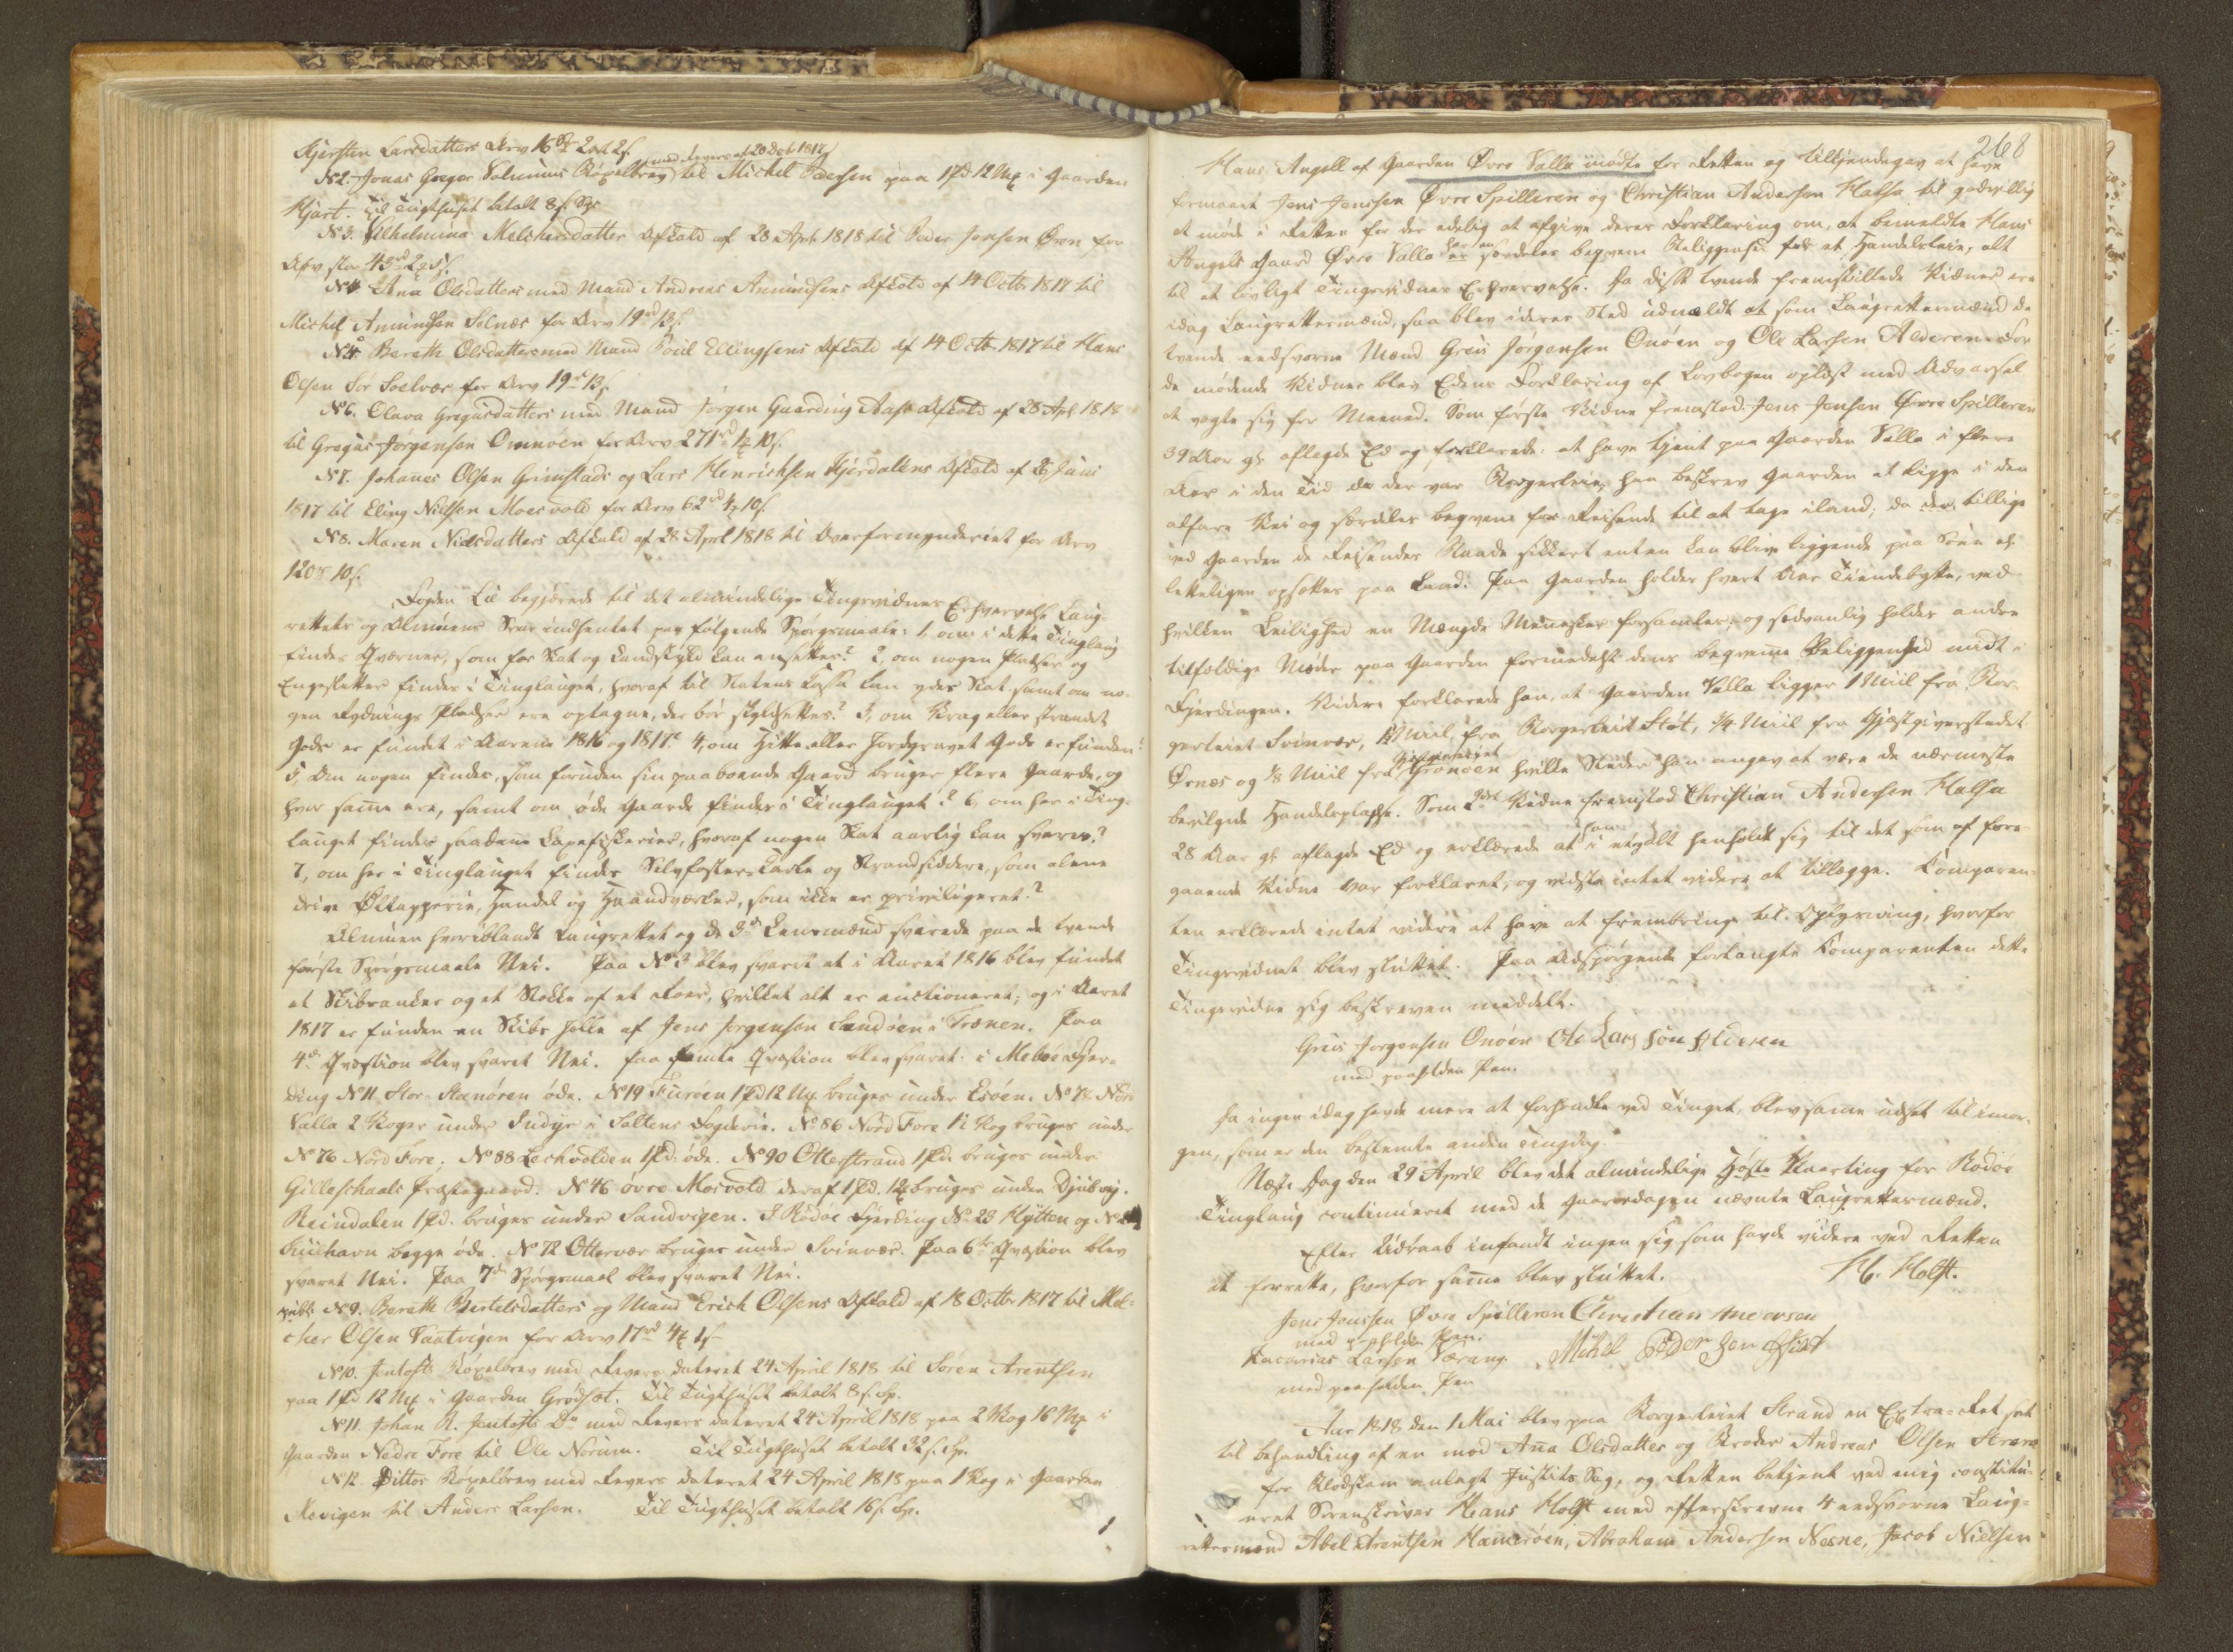 Kjersten Larsdatters Arv 16 rd 2 ort 2 s.
med Revers af 20 Oct 1817
No 2. Jonas Greger Salamius Bøxelbrev til Michel Poelsen paa 1 Pd 12 Mk i Gaarden
Kjart. Til Tugthuset betalt 8 s. Sp.
No 3. Vilhelmina Melchersdatter Afkald af 28 Apr. 1818 til Peder Jensen Øren for
Arv stor 43 rd
No 4. Ana Olsdatters med Mand Andreas Amundsens Afkald af 14 Octb. 1817 til
Michel Amundsen Solvær for Arv 19 rd 13 s.
No 5. Bereth Olsdatters med Mand Poul Ellingsens Afkald af 14 Octb. 1817 til Hans
Olsen Sør Soelvær for Arv 19 rd 13 s.
No 6. Olava Gregusdatters med Mand Jørgen Gaarding Aass Afkald af 28 Apl 1818
til Gregus Jørgensen Omnøen for Arv 271 rd 10 s.
No 7. Johanes Olsen Grimstads og Lars Henrichsen Kjerdalens Afkald af 26 Juni
1817 til Eling Nilsen Moesvold for Arv 62 rd 4 10 s.
No 8. Maren Nielsdatters Afkald af 28 April 1818 til Overformynderiet for Arv
120 rd 10 s.
Fogden Lie begjærede til det almindelige Tingsvidnes Erhvervelse Laug-
rettets og Almuens Svar indhentet paa følgende Spørgsmaale: 1, om i dette Tinglaug
findes Qværner, som for Skat og Landskyld kan ansettes? 2, om nogen Pladser og
Engesletter findes i Tinglauget, hvoraf til Statens Cassa kan ydes Skat, samt om no-
gen Rydnings Pladser ere optagne, der bør skyldsettes? 3, om Vrag eller strandet
Gods er fundet i Aarene 1816 og 1817? 4, om Hitte eller Jordgravet Gods er funden?
5, Om nogen findes, som foruden sin paaboende Gaard bruger flere Gaarde, og
hvor same ere, samt om øde Gaarde findes i Tinglauget? 6, om her i Ting-
lauget findes saadane Laxefiskerier, hvoraf nogen Skat aarlig kan svares?
7, om her i Tinglauget findes Selvfoster Karle og Strandsiddere, som alene
drive Øltapperie, Handel og Haandværker, som ikke er priviligeret?
Almuen hvoriblandt Laugrettet og de 3de Lensmænd svarede paa de tvende
første Spørgsmaale Nei. Paa No 3 blev svaret at i Aaret 1816 blev fundet
et Skibsanker og et Stokke af et Roer, hvilket alt er auctioneret; og i Aaret
1817 er funden en Skibs Jolle af Jens Jørgensen Sandøen i Trænen. Paa
4de Qvæstion blev svaret Nei. Paa femte Qvæstion blev svaret: i Meløe Fjer-
ding No 11 Stor-Stænøren øde. No 19 Furøen 1 Pd 12 Mk bruges under Esøen. No 78 Nord
Valla 2 Voger under Indyr i Saltens Fogderie. No 86 Nord Fore 1½ Vog bruges under
No 76 Nord Fore. No 88 Leshvolden 1 Pd. øde. No 90 Otterstrand 1 Pd. bruges under
Gilleschaals Præstegaard. No 46 øvre Mosvold deraf 1 Pd. 12 bruges under Djubvig.
Reindalen 1 Pd. bruges under Sandvigen. I Rødøe Fjerding No 23 Hytten og No
Kuuhavn begge øde. No 72 Ottervær bruges under Svinvær. Paa 6te Qvæstion blev
svaret Nei. Paa 7de Spørgsmaal blev svaret Nei.
publ. No 9. Bereth Bertelsdatters og Mand Erich Olsens Afkald af 18 Octbr 1817 til Mel-
cher Olsen Vaatvigen for Arv 17 rd 4 1 s.
No 10. Jentofts Bøxelbrev med Revers dateret 24 April 1818 til Søren Arentsen
paa 1 Pd 12 Mk i Gaarden Grødset. Til Tugthuset betalt 8 s. Sp.
No 11. Johan R. Jentofts Do med Revers dateret 24 April 1818 paa 2 Vog 16 Mk i
Gaarden Nedre Fore til Ole Norum. Til Tugthuset betalt 32 s. Sp.
No 12. Dittos Bøxelbrev med Revers dateret 24 April 1818 paa 1 Vog i Gaarden
Mevigen til Anders Larsen. Til Tugthuset betalt 16 s. Sp.
268
Hans Angell af Gaarden Øvre Valla mødte for Retten og tilkjendegav at have
formaaet Jens Jensen Øvre Spilleren og Christian Andersen Halsa til godvillig
at møde i Retten for der edelig at afgive deres Forklaring om, at bemeldte Hans
Angels Gaard Øvre Valla har en særdeles beqvem Beliggenhed for et Handelsleie, alt
til et lovligt Tingsvidnes Erhvervelse. Da disse tvende fremstillede Vidner ere
idag Laugrettesmænd, saa blev i deres Sted udmeldt at som Laugrettesmænd de
tvende eedsvorne Mænd Greis Jørgensen Onøen og Ole Larsen Alderen. For
de mødende Vidner blev Edens Forklaring af Lovbogen oplæst med Advarsel
at vogte sig for Meened. Som første Vidne fremstod Jens Jensen Øvre Spilleren
39 Aar gl. aflagde Ed og forklarede: at have tjent paa Gaarden Valla i flere
Aar i den Tid da der var Borgerleie, han beskrev Gaarden at ligge i den
alfare Vei og særdeles beqvem for Reisende til at tage iland, da der tillige
ved Gaarden de Reisendes Baade sikkert enten kan blive liggende paa Søen el.
letteligen opsettes paa Land. Paa Gaarden holdes hvert Aar Tiendebytte, ved
hvilken Leilighed en Mængde Mennesker forsamles, og sædvanlig holdes andre
tilfældige Møder paa Gaarden formedelst dens beqvemme Beliggenhed midt i
Fjerdingen. Videre forklarede han, at Gaarden Valla ligger 1 Miil fra Bor-
gerleiet Svinvær, Miil fra Borgerleiet Støt, 3/4 Miil fra Gjæstgiverstedet
Ørnæs og 1/8 Miil fra Gjæstgiveriet Grønøen hvilke Steder han angav at være de nærmeste
bevilgede Handelspladse. Som 2det Vidne fremstod Christian Andersen Halsa
28 Aar gl. aflagde Ed og erklærede at han i et og alt henholdt sig til det som af fore-
gaaende Vidne var forklaret, og vidste intet videre at tillægge. Comparen-
ten erklærede intet videre at have at frembringe til Oplysning, hvorfor
Tingsvidnet blev sluttet. Paa Adspørgende forlangte Comparenten dette
Tingsvidne sig beskreven meddelt.
Greis Jørgensen Onøen Ole Lars søn Alderen
med paaholden Pen.
Da ingen idag havde mere at forhandle ved Tinget, blev same udsat til imor-
gen, som er den bestemte anden Tingdag.
Næste Dag den 29 April blev det almindelige Høste Vaarting for Rødøe
Tinglaug continueret med de Gaarsdagen nævnte Laugrettesmænd.
Efter Udraab infandt ingen sig som havde videre ved Retten
at forrette, hvorfor same blev sluttet. H. Holst.
Jens Jensen Øvre Spilleren Christian Andersen
med paaholden Pen.
Zacarias Larsen Værang. Mikel Peder sen
med paaholden Pen
Aar 1818 den 1 Mai blev paa Borgerleiet Strand en Extra-Ret sat
til behandling af en mod Ana Olsdatter og Broder Andreas Olsen Strand
for Blodskam anlagt Justits Sag, og Retten betjent ved mig constitu-
eret Sorenskriver Hans Holst med efterskrevne 4 eedsvorne Laug-
rettesmænd Abel Arentsen Hamerøen, Abraham Andersen Nesne, Jacob Nielsen